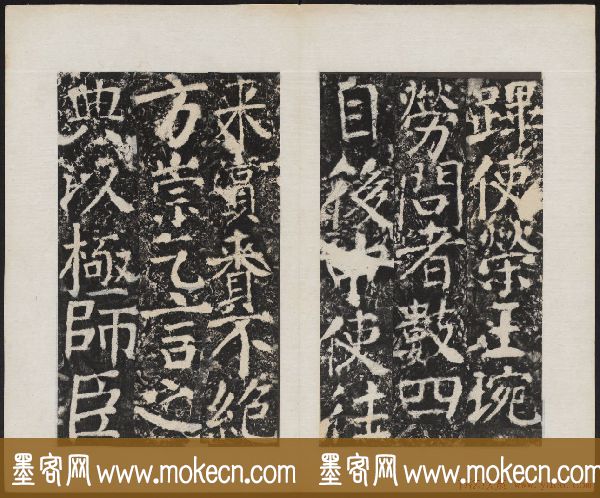 蹕使榮王琬
勞問者數四
自後中使往
来賞賚不絕
方崇乞言之
典以極師臣
墨客网 www.mokecn.com
墨客网 www.mokecn.com